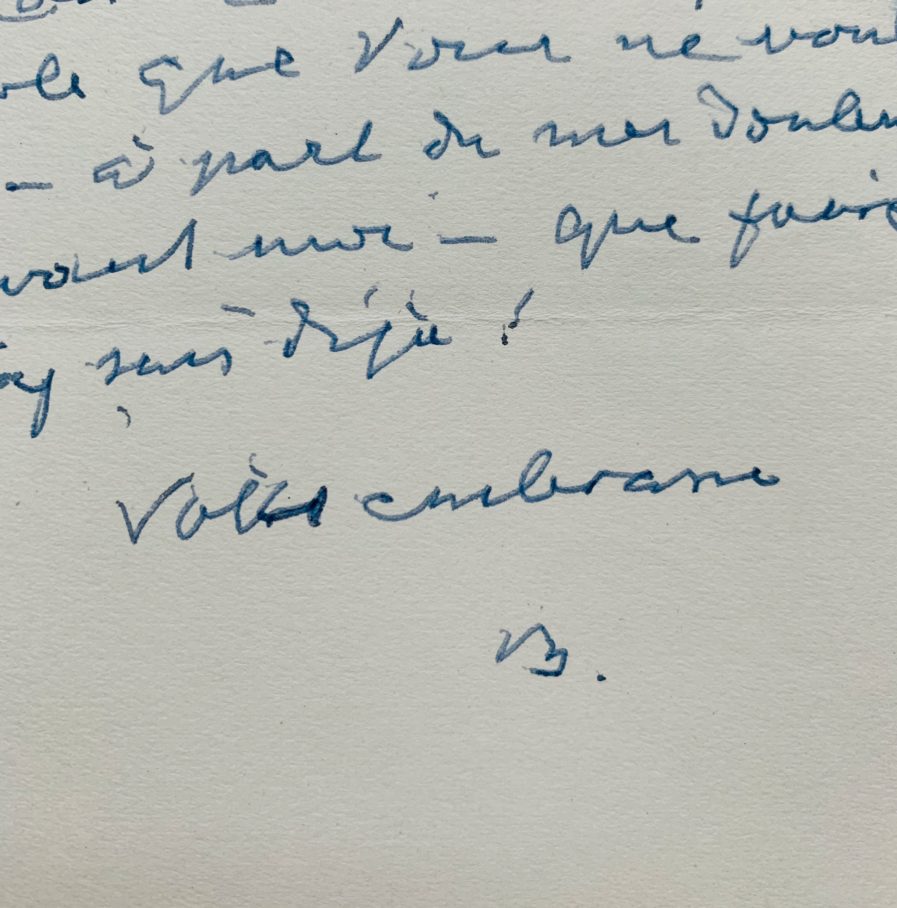 que vous ne voul
— à part de mes douleu
vant moi — que faire
suis déjà !
Vous embrasse
B.